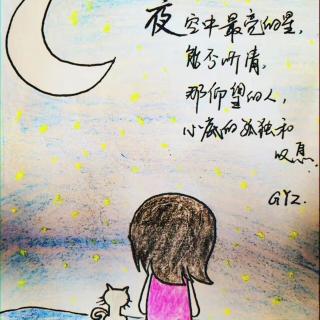 夜空中最亮的星,
能否听清,
那仰望的人,
心底的孤独和
叹息.
GYZ.